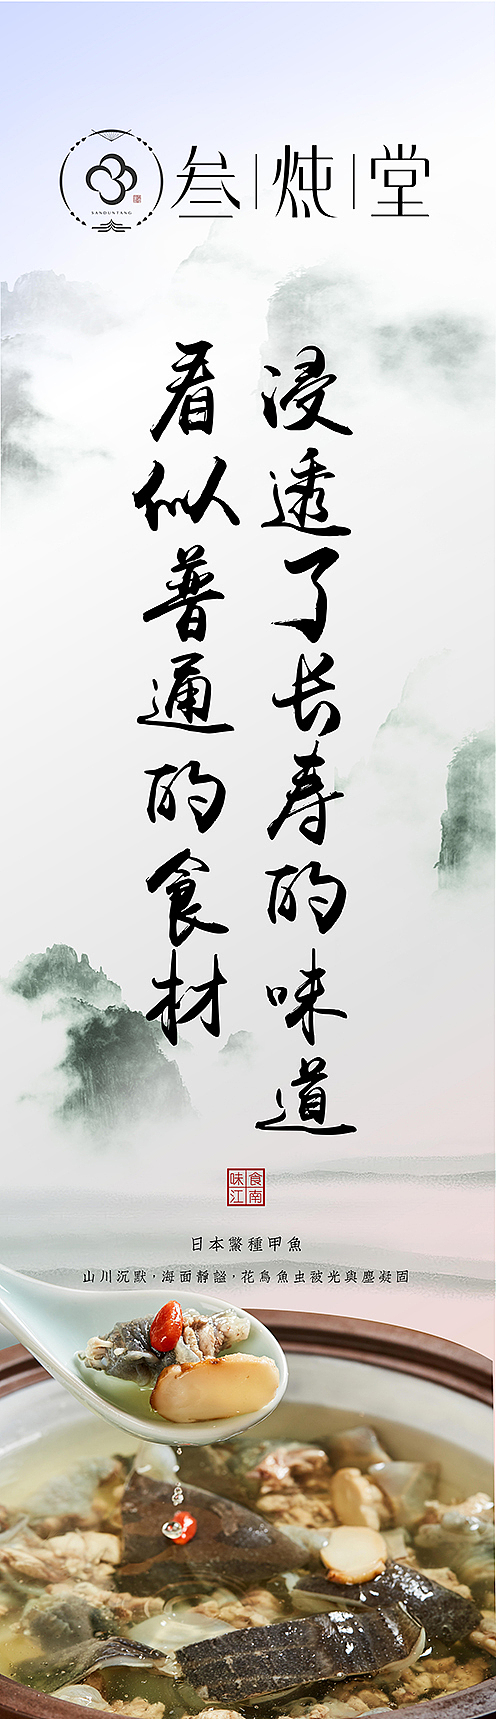 叁|炖|堂
SANDUNTANG
看似普通的食材
浸透了长寿的味道
食南
味江
日本鱉種甲魚
山川沉默，海面靜謐，花鳥魚虫被光與塵凝固